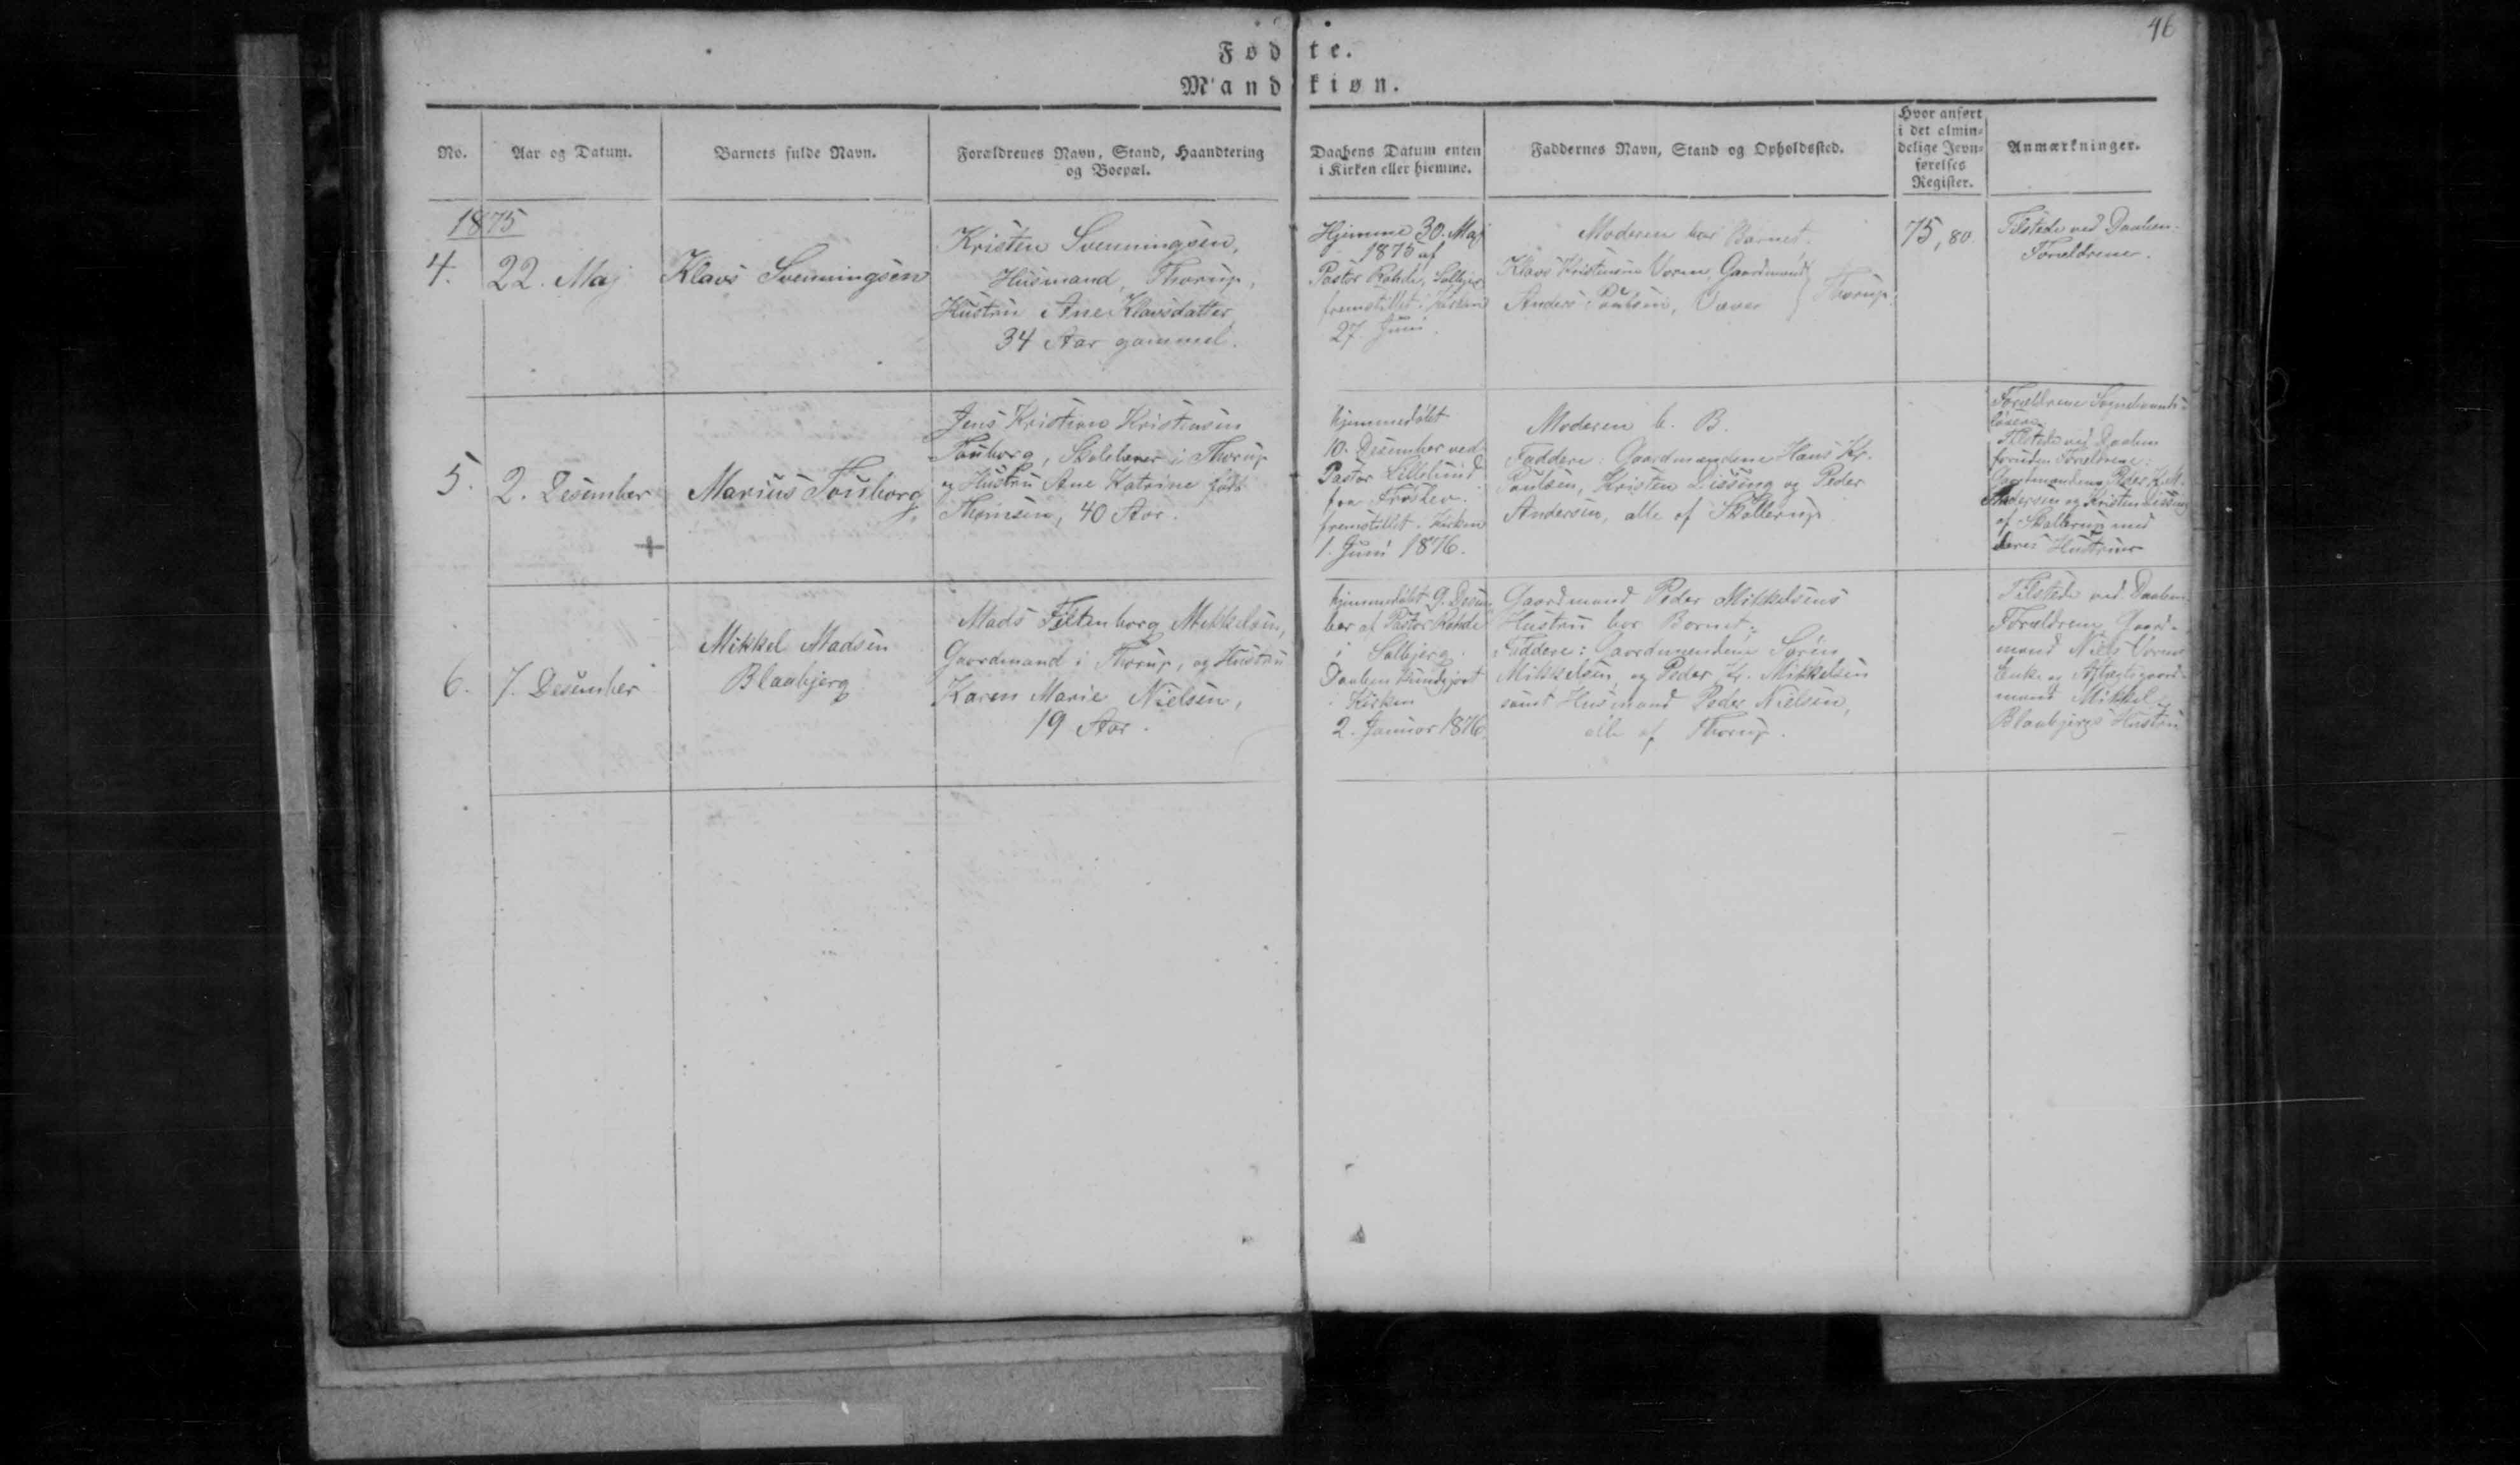 46
Fødte.
Mandkiøn.
No.
Aar og Datum.
Barnets fulde Navn.
Forældrenes Navn, Stand, Haandtering
og Boepæl.
Daabens Datum enten
i Kirken eller hiemme.
Faddernes Navn, Stand og Opholdssted.
Hvor anført
i det almin-
delige Jevn-
førelses
Register.
Anmærkninger.
1875
4.
22. Maj
Klavs Svenningsen
Kristen Svenningsen,
Husmand, Thorup,
Hustru Ane Klavsdatter
34 Aar gammel.
Hjemme 30. Maj
1875 af
Pastor Rohde, Solbjerg
fremstillet i Kirken
27. Juni.
Moderen bar Barnet.
Klavs Kristensen Vorm, Gaardmand
Anders Poulsen, Væver } Thorup.
75, 80.
Tilstede ved Daaben.
Forældrene.
5.
2. Desember
Marius Fousborg
Jens Kristian Kristensen
Fousborg, Skolelærer i Thorup
og Hustru Ane Katrine født
Thomsen, 40 Aar.
hjemmedøbt
10. Desember ved
Pastor Lillelund
fra Frøslev.
fremstillet i Kirken
1. Juni 1876.
Moderen b. B.
Faddere: Gaardmændene Hans Kr.
Poulsen, Kristen Dissing og Peder
Andersen, alle af Skallerup
Forældrene Sognebaands-
løsere
Tilstede ved Daaben
foruden Forældrene:
Gaardmændene Peder
Andersen og Kristen Dissing
af Skallerup med
deres Hustruer
6.
7. Desember
Mikkel Madsen
Blaabjerg
Mads Feltenborg Mikkelsen,
Gaardmand i Thorup, og Hustru
Karen Marie Nielsen,
19 Aar.
hjemmedøbt 9. Desem-
ber af Pastor Rohde
i Solbjerg.
Daaben kundgjort
i Kirken
2. Januar 1876.
Gaardmand Peder Mikkelsens
Hustru bar Barnet.
Faddere: Gaardmændene Søren
Mikkelsen og Peder Kr. Mikkelsen
samt Husmand Peder Nielsen,
alle af Thorup.
Tilstede ved Daaben
Forældrene, Gaard-
mand Niels Vorms
Enke og Aftægtsgaard-
mand Mikkel
Blaabjergs Hustru